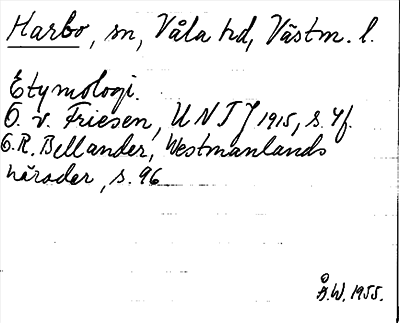 Harbo, sn, Våla hd, Västm. l.
Etymologi.
O. v. Friesen, UNT 1915, s. 4f.
G.R. Bellander, Westmanlands
härader, s. 96
Å.W. 1955.